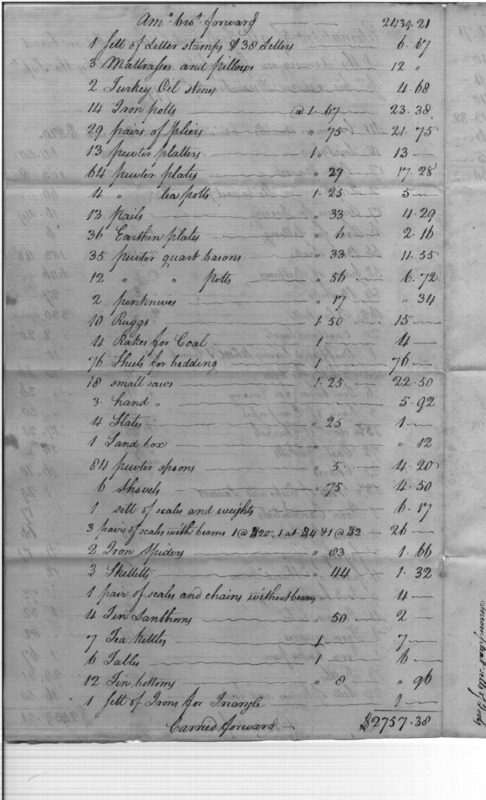 Amt. brot. forward 2439.21
1 sett of Letter stamps & 38 Letters 6.67
3 Mattrasses and pillows 12 "
2 Turkey Oil stones 4.68
14 Iron potts @ 1.67 23.38
29 pairs of pliers " 75 21.75
13 pewter platters 1 13 —
64 pewter plates " 27 17.28
4 " tea potts 1.25 5 —
13 pails " 33 4.29
36 Earthin plates " 6 2.16
35 pewter quart basons " 33 11.55
12 " " potts " 56 6.72
2 penknives " 17 " 34
10 Ruggs 1.50 15 —
4 Rakes for Coal 1 4 —
76 Sheets for bedding 1 76 —
18 small saws 1.25 22.50
3 hand " 5.92
4 Slates " 25 1 —
1 Sand box " " 12
84 pewter spoons " 5 4.20
6 Shovels " 75 4.50
1 sett of scales and weights 6.17
3 pairs of scales with beams 1 @ $20. 1 at $4 & 1 @ $2 26 —
2 Iron Spiders " 83 1.66
3 Skilletts " 44 1.32
1 pair of scales and chains without beams 4 —
4 Tin Lanthorns 50 2 —
7 Tea Kettles 1 7 —
6 Tables 1 6 —
12 Tin bottoms " 8 " 96
1 sett of Irons for Triangle 1 —
Carried forward $2757.38